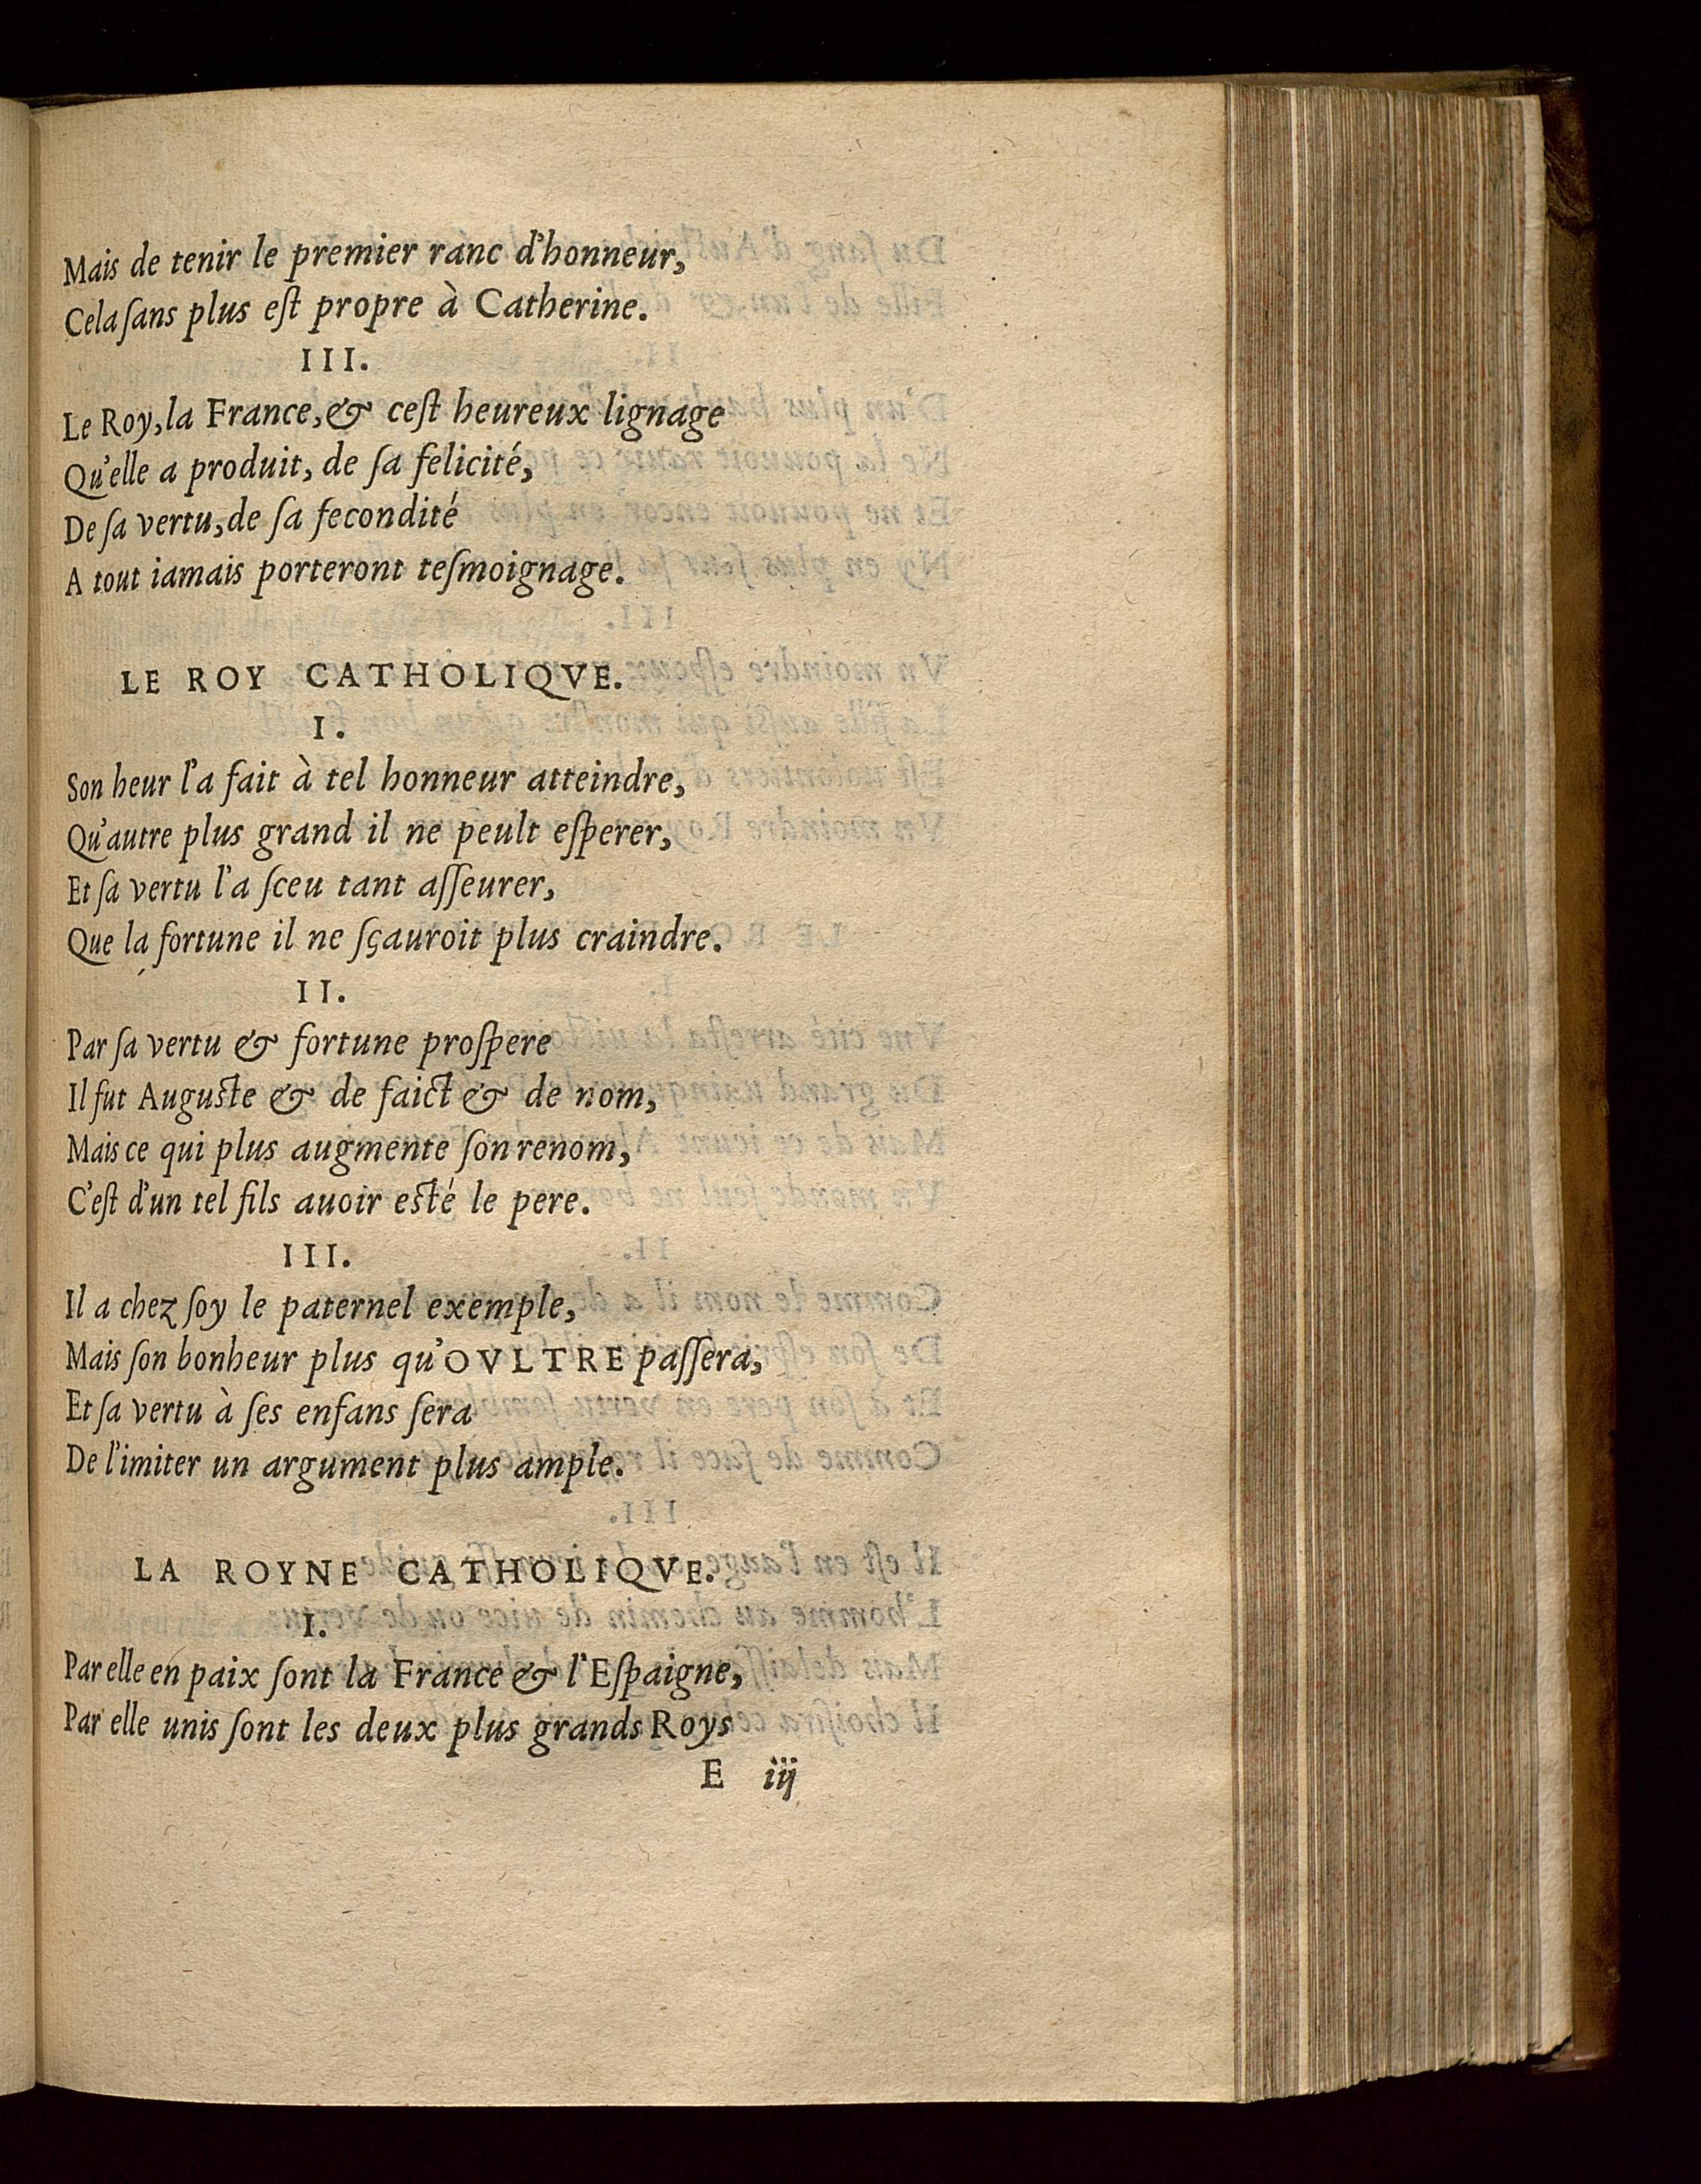 Mais de tenir le premier ranc d'honneur,
Cela ſans plus eſt propre à Catherine.
III.
Le Roy, la France, & ceſt heureux lignage
Qu'elle a produit, de ſa felicité,
De ſa vertu, de ſa fecondité
A tout iamais porteront teſmoignage.
LE ROY CATHOLIQVE.
I.
Son heur l'a fait à tel honneur atteindre,
Qu'autre plus grand il ne peult eſperer,
Et ſa vertu l'a ſceu tant aſſeurer,
Que la fortune il ne ſçauroit plus craindre.
II.
Par ſa vertu & fortune proſpere
Il fut Auguſte & de faict & de nom,
Mais ce qui plus augmente ſon renom,
C'eſt d'un tel fils auoir eſté le pere.
III.
Il a chez ſoy le paternel exemple,
Mais ſon bonheur plus qu'OVLTRE paſſera,
Et ſa vertu à ſes enfans ſera
De l'imiter un argument plus ample.
LA ROYNE CATHOLIQVE.
I.
Par elle en paix ſont la France & l'Eſpaigne,
Par elle unis ſont les deux plus grands Roys
E iij